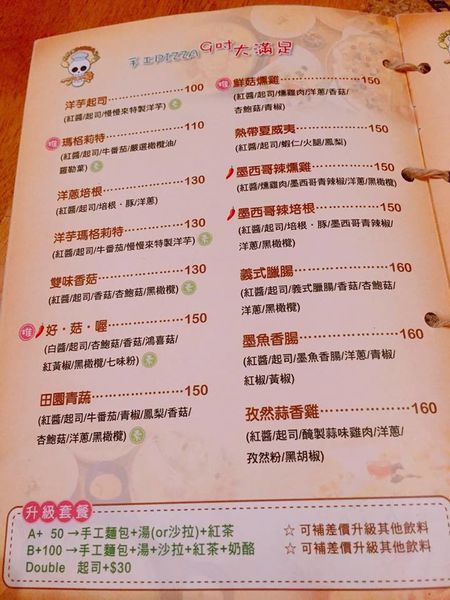 手工PIZZA 9吋大滿足
洋芋起司………………100
(紅醬/起司/慢慢來特製洋芋) 素
推 瑪格莉特………………110
(紅醬/起司/牛番茄/嚴選橄欖油/
羅勒葉) 素
洋蔥培根………………130
(紅醬/起司/培根‧豚/洋蔥)
洋芋瑪格莉特…………130
(紅醬/起司/牛番茄/慢慢來特製洋芋) 素
雙味香菇………………130
(紅醬/起司/香菇/杏鮑菇/黑橄欖) 素
推 好‧菇‧喔……………150
(白醬/起司/杏鮑菇/香菇/鴻喜菇/
紅黃椒/黑橄欖/七味粉) 素
田園青蔬………………150
(紅醬/起司/牛番茄/青椒/鳳梨/香菇/
杏鮑菇/洋蔥/黑橄欖) 素
推 鮮菇燻雞………………150
(紅醬/起司/燻雞肉/洋蔥/香菇/
杏鮑菇/青椒)
熱帶夏威夷……………150
(紅醬/起司/蝦仁/火腿/鳳梨)
墨西哥辣燻雞…………150
(紅醬/燻雞肉/墨西哥青辣椒/洋蔥/黑橄欖)
墨西哥辣培根…………150
(紅醬/起司/培根‧豚/墨西哥青辣椒/
洋蔥/黑橄欖)
義式臘腸………………160
(紅醬/起司/義式臘腸/香菇/杏鮑菇/
洋蔥/黑橄欖)
墨魚香腸………………160
(紅醬/起司/墨魚香腸/洋蔥/青椒/
紅椒/黃椒)
孜然蒜香雞……………160
(紅醬/起司/醃製蒜味雞肉/洋蔥/
孜然粉/黑胡椒)
升級套餐
A+ 50 →手工麵包+湯(or沙拉)+紅茶 ☆ 可補差價升級其他飲料
B+100→手工麵包+湯+沙拉+紅茶+奶酪 ☆ 可補差價升級其他飲料
Double 起司+$30